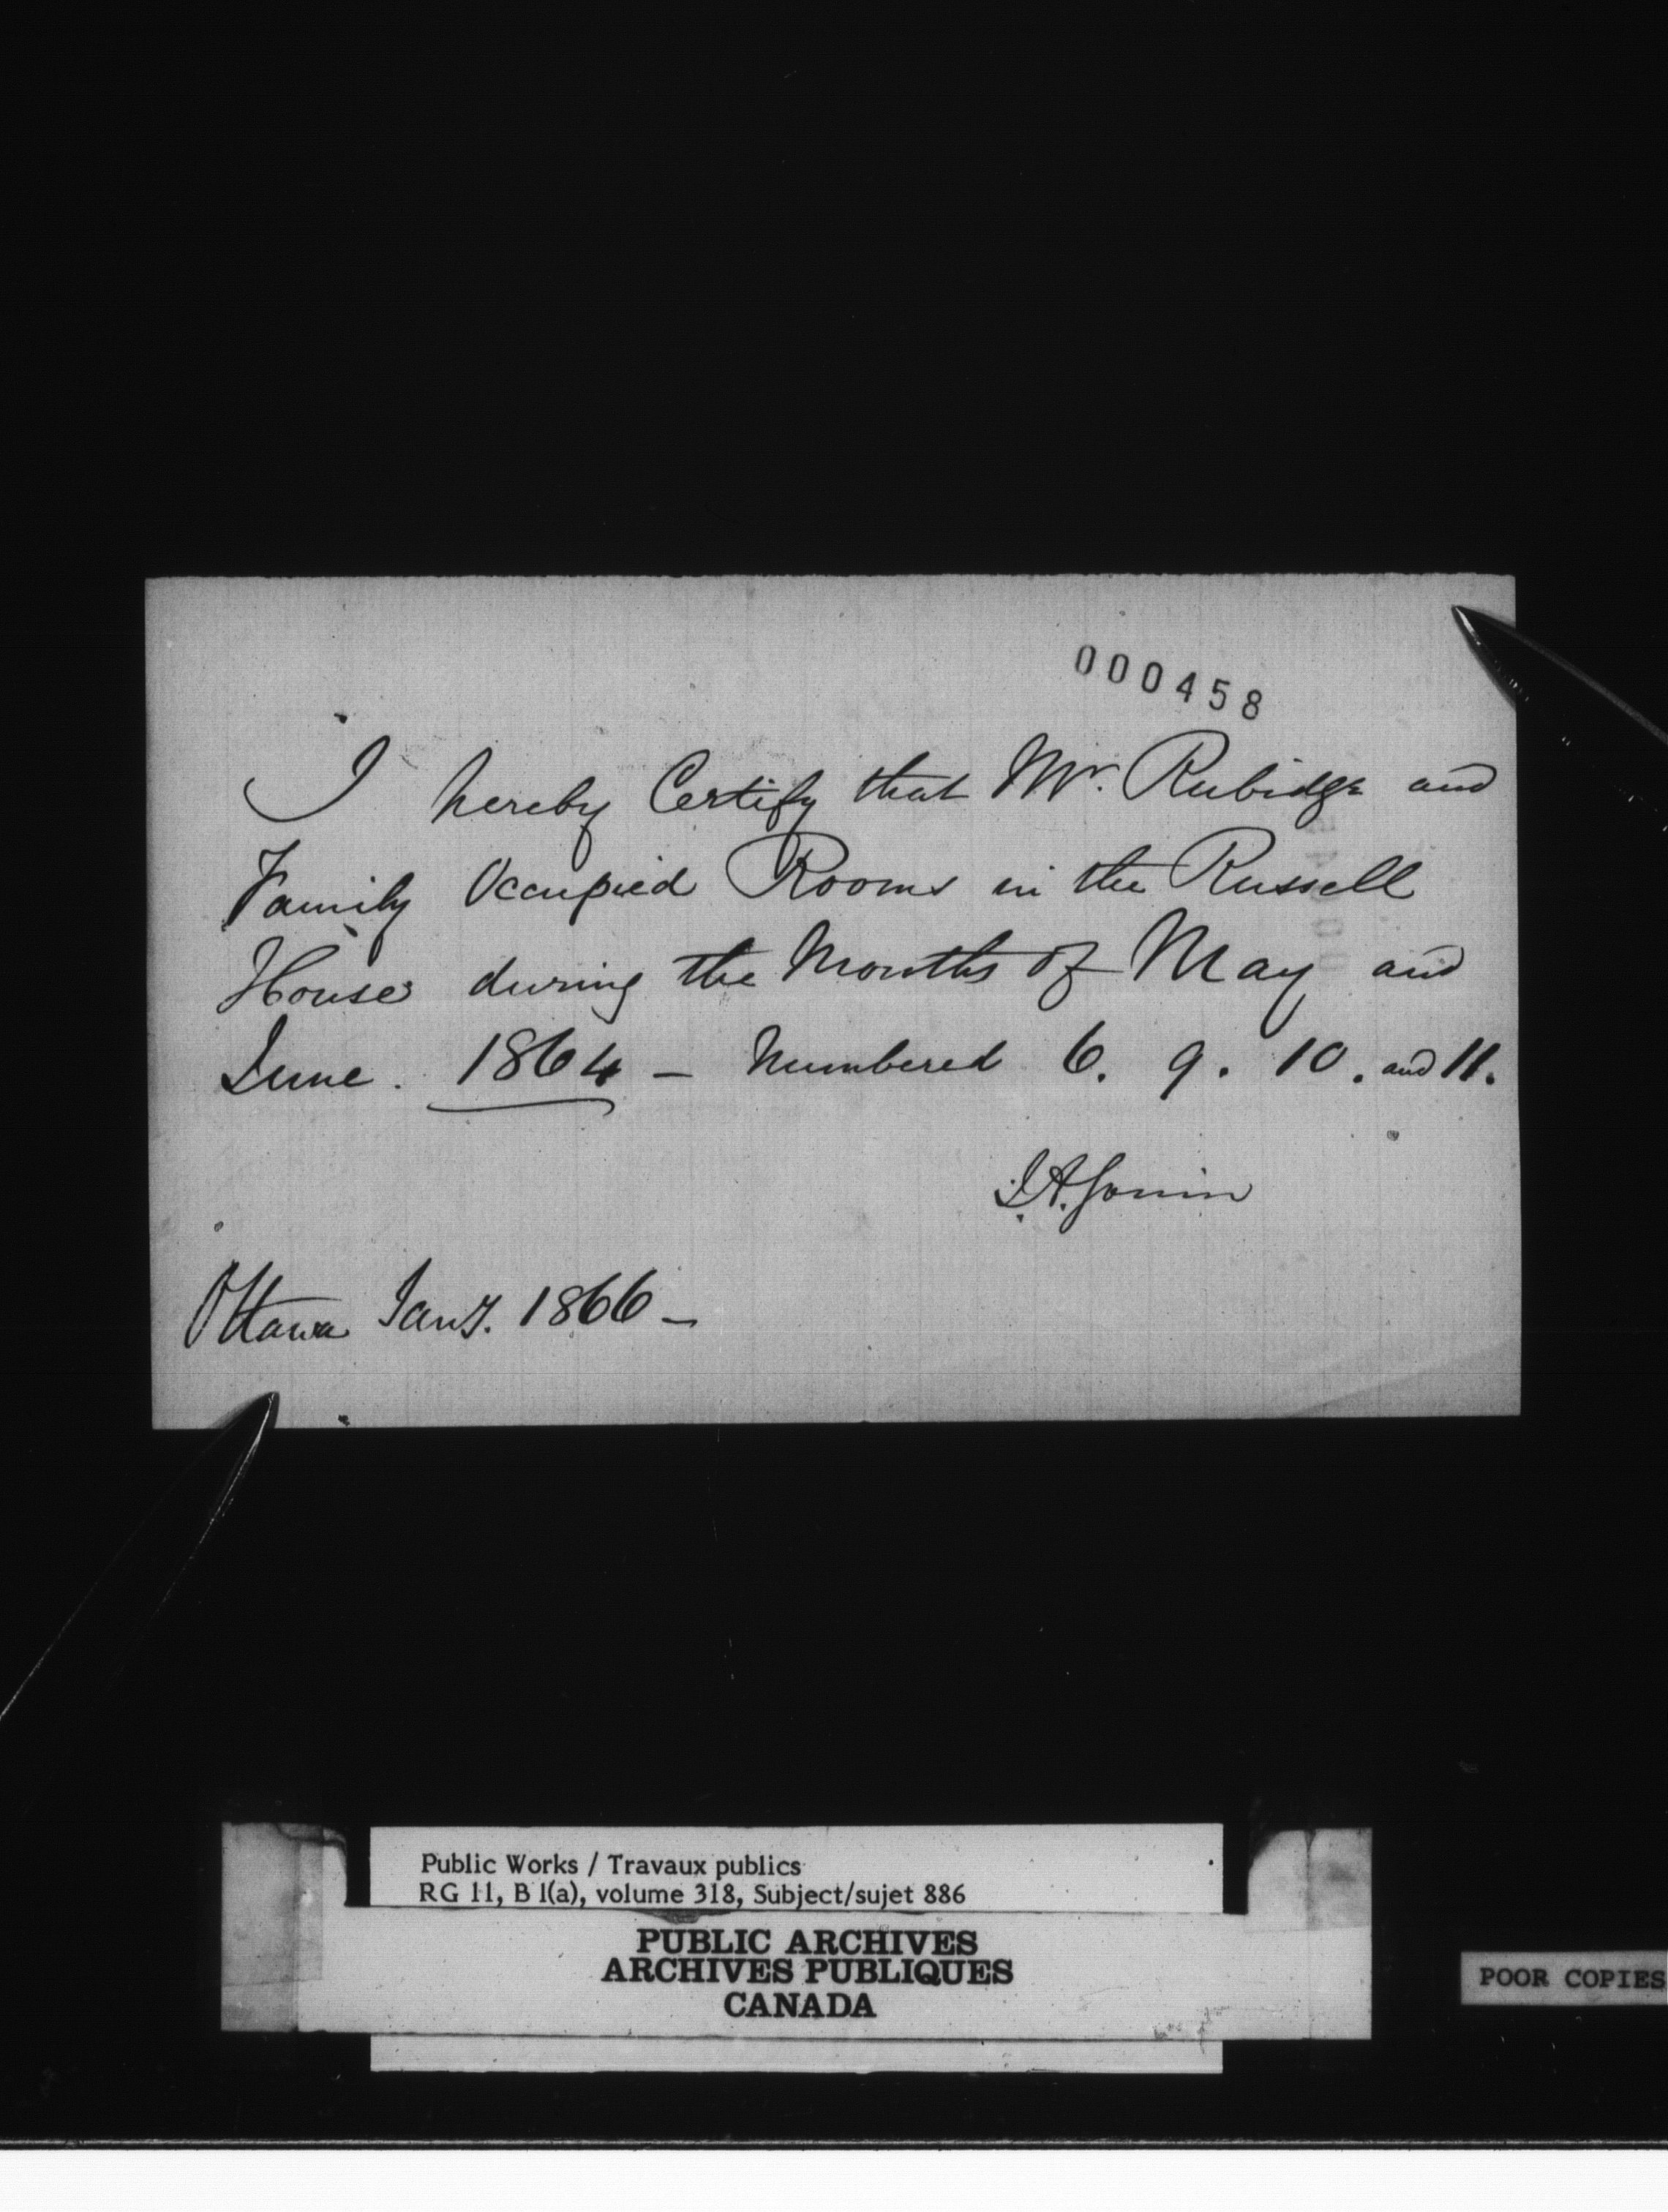 000458
I hereby Certify that Mr. Rubidge and
Family Occupied Rooms in the Russell
House during the Months of May and
June. 1864 - Numbered 6. 9. 10. and 11.
J.A. Gouin
Ottawa Jany. 1866 -
Public Works / Travaux publics
RG 11, B 1(a), volume 318, Subject/sujet 886
PUBLIC ARCHIVES
ARCHIVES PUBLIQUES
CANADA
POOR COPIES